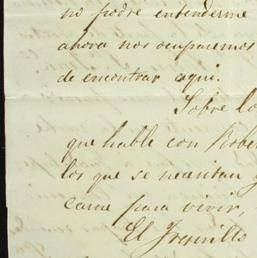 no podré entenderme
ahora nos ocuparemos
de encontrar aqui.
Sobre lo
que hable con Rober
los que se necesitan y
carne para vivir,
El Fresnillo